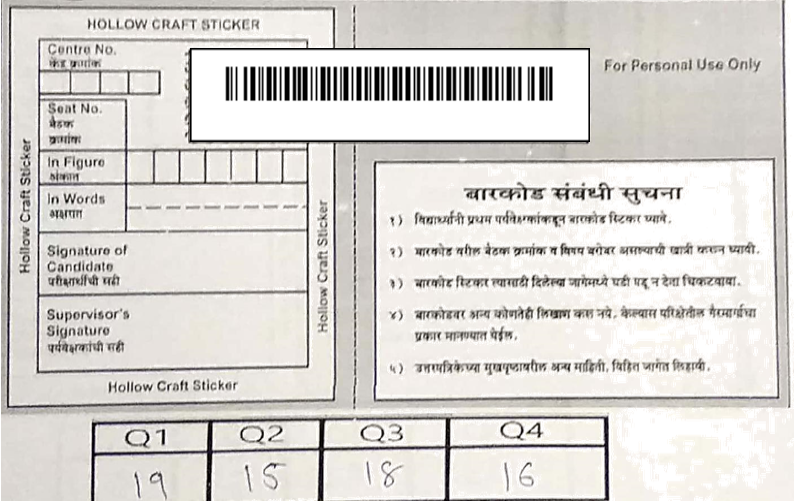 HOLLOW CRAFT STICKER
Centre No.
केंद्र क्रमांक
Seat No.
बैठक
क्रमांक
In Figure
अंकात
In Words
अक्षरात
Signature of
Candidate
परीक्षार्थीची सही
Supervisor's
Signature
पर्यवेक्षकांची सही
Hollow Craft Sticker
Hollow Craft Sticker
Hollow Craft Sticker
For Personal Use Only
बारकोड संबंधी सुचना
१) विद्यार्थ्यांनी प्रथम पर्यवेक्षकांकडून बारकोड स्टिकर घ्यावे.
२) बारकोड वरील बैठक क्रमांक व विषय बरोबर असल्याची खात्री करून घ्यावी.
३) बारकोड स्टिकर त्यासाठी दिलेल्या जागेमध्ये घडी पडू न देता चिकटवावा.
४) बारकोडवर अन्य कोणतेही लिखाण करू नये. केल्यास परिक्षेतील गैरमार्गाचा
प्रकार मानण्यात येईल.
५) उत्तरपत्रिकेच्या मुखपृष्ठावरील अन्य माहिती, विहित जागेत लिहावी.
Q1 Q2 Q3 Q4
19 15 18 16